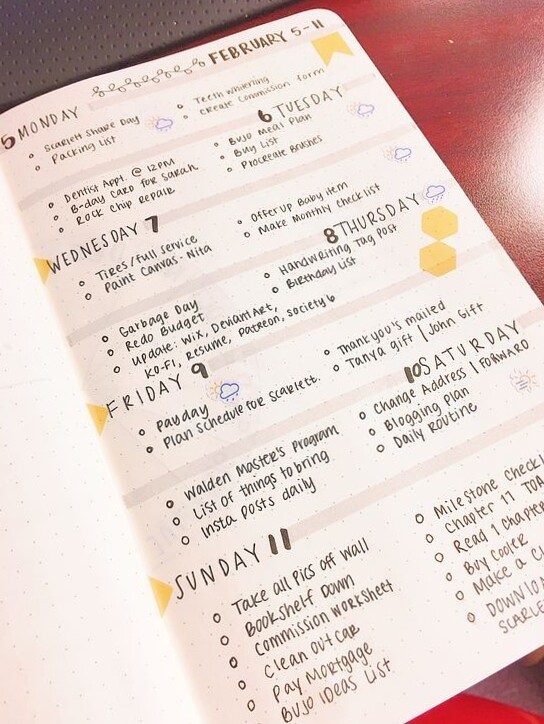 FEBRUARY 5-11
5 MONDAY
Scarlett Share Day
Packing List
Teeth Whitening
Create Commission form
6 TUESDAY
Dentist Appt. @ 12PM
B-day card for Sarah
Rock Chip Repair
BUJO Meal Plan
Buy List
Procreate Brushes
WEDNESDAY 7
Tires/full service
Paint Canvas- Nita
Offer Up Baby item
Make Monthly checklist
8 THURSDAY
Garbage Day
Redo Budget
Update: Wix, DeviantArt,
KO-FI, Resume, Patreon, Society6
Handwriting Tag Post
Birthday List
FRIDAY 9
Payday
Plan Schedule for Scarlett.
Thank you's mailed
Tanya gift | John Gift
10 SATURDAY
Walden Master's Program
List of things to bring
Insta Posts daily
Change Address | FORWARD
Blogging Plan
Daily Routine
SUNDAY 11
Take all pics off wall
Bookshelf Down
Commission worksheet
Clean out car
Pay Mortgage
BUJO IDEAS List
Milestone Checkl
Chapter 11
Read 1 chapte
Buy Cooler
Make a
DOWNLO
SCARLE